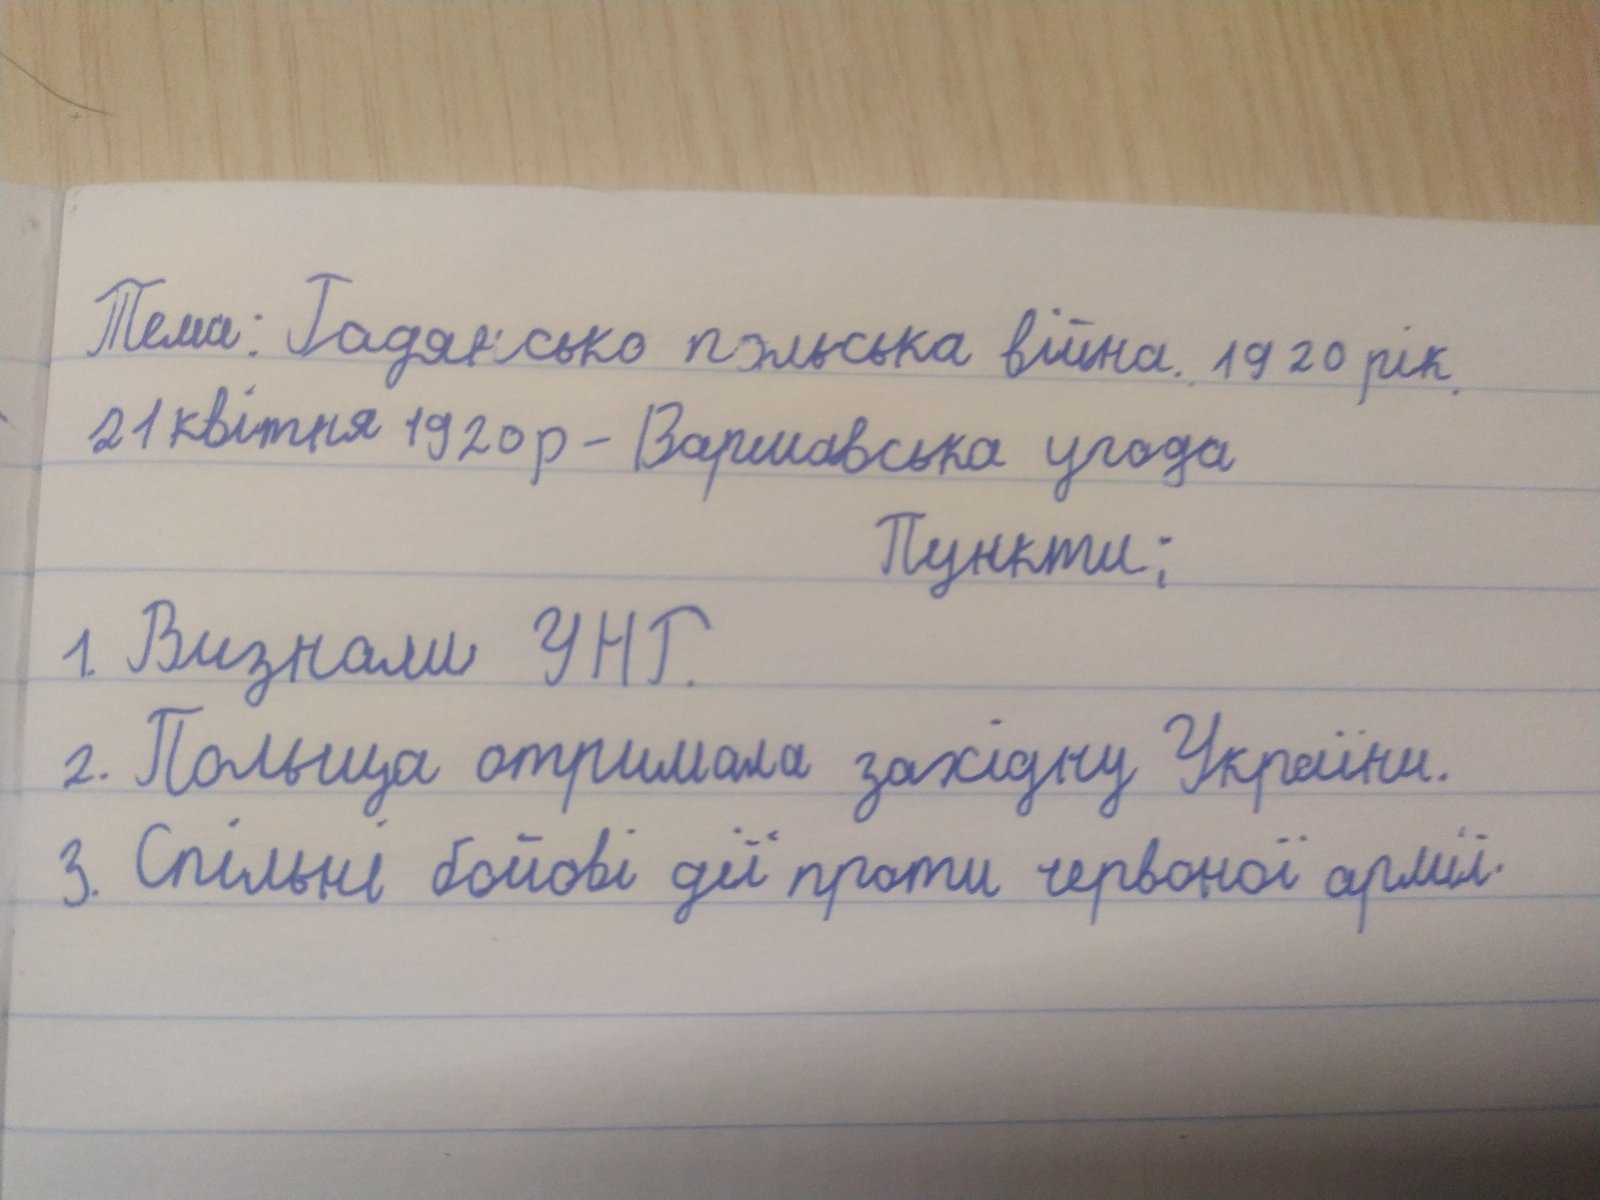 Тема: Гадянсько польська війна. 1920 рік.
21 квітня 1920р - Варшавська угода
Пункти:
1. Визнали УНГ.
2. Польща отримала західну України.
3. Спільні бойові дії проти червоної армії.